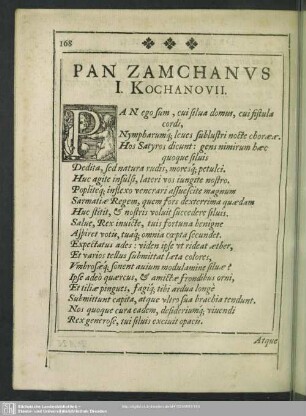 168
PAN ZAMCHANVS
I. KOCHANOVII.
PAN ego sum, cui silua domus, cui fistula
cordi,
Nympharumq́; leues sublustri nocte choreæ.
Hos Satyros dicunt: gens nimirum hæc
quoque siluis
Dedita, sed natura rudis, moresq́; petulci.
Huc agite insulsi, lateri vos iungite nostro,
Popliteq́; inflexo venerari assuescite magnum
Sarmatiæ Regem, quem sors dexterrima quædam
Huc stitit, & nostris voluit succedere siluis.
Salue, Rex inuicte, tuis fortuna benigne
Aspiret votis, tuaq́; omnia cæpta secundet.
Expectatus ades: viden ipse vt rideat æther,
Et varios tellus submittat læta colores,
Vmbrosæq́; sonent auium modulamine siluæ?
Ipse adeò quercus, & amictæ frondibus orni,
Et tiliæ pinguis, fagiq́; tibi ardua longè
Submittunt capita, atque vltro sua brachia tendunt.
Nos quoque cura eadem, desideriumq́; viuendi
Rex generose, tui siluis exciuit opacis.
Atque